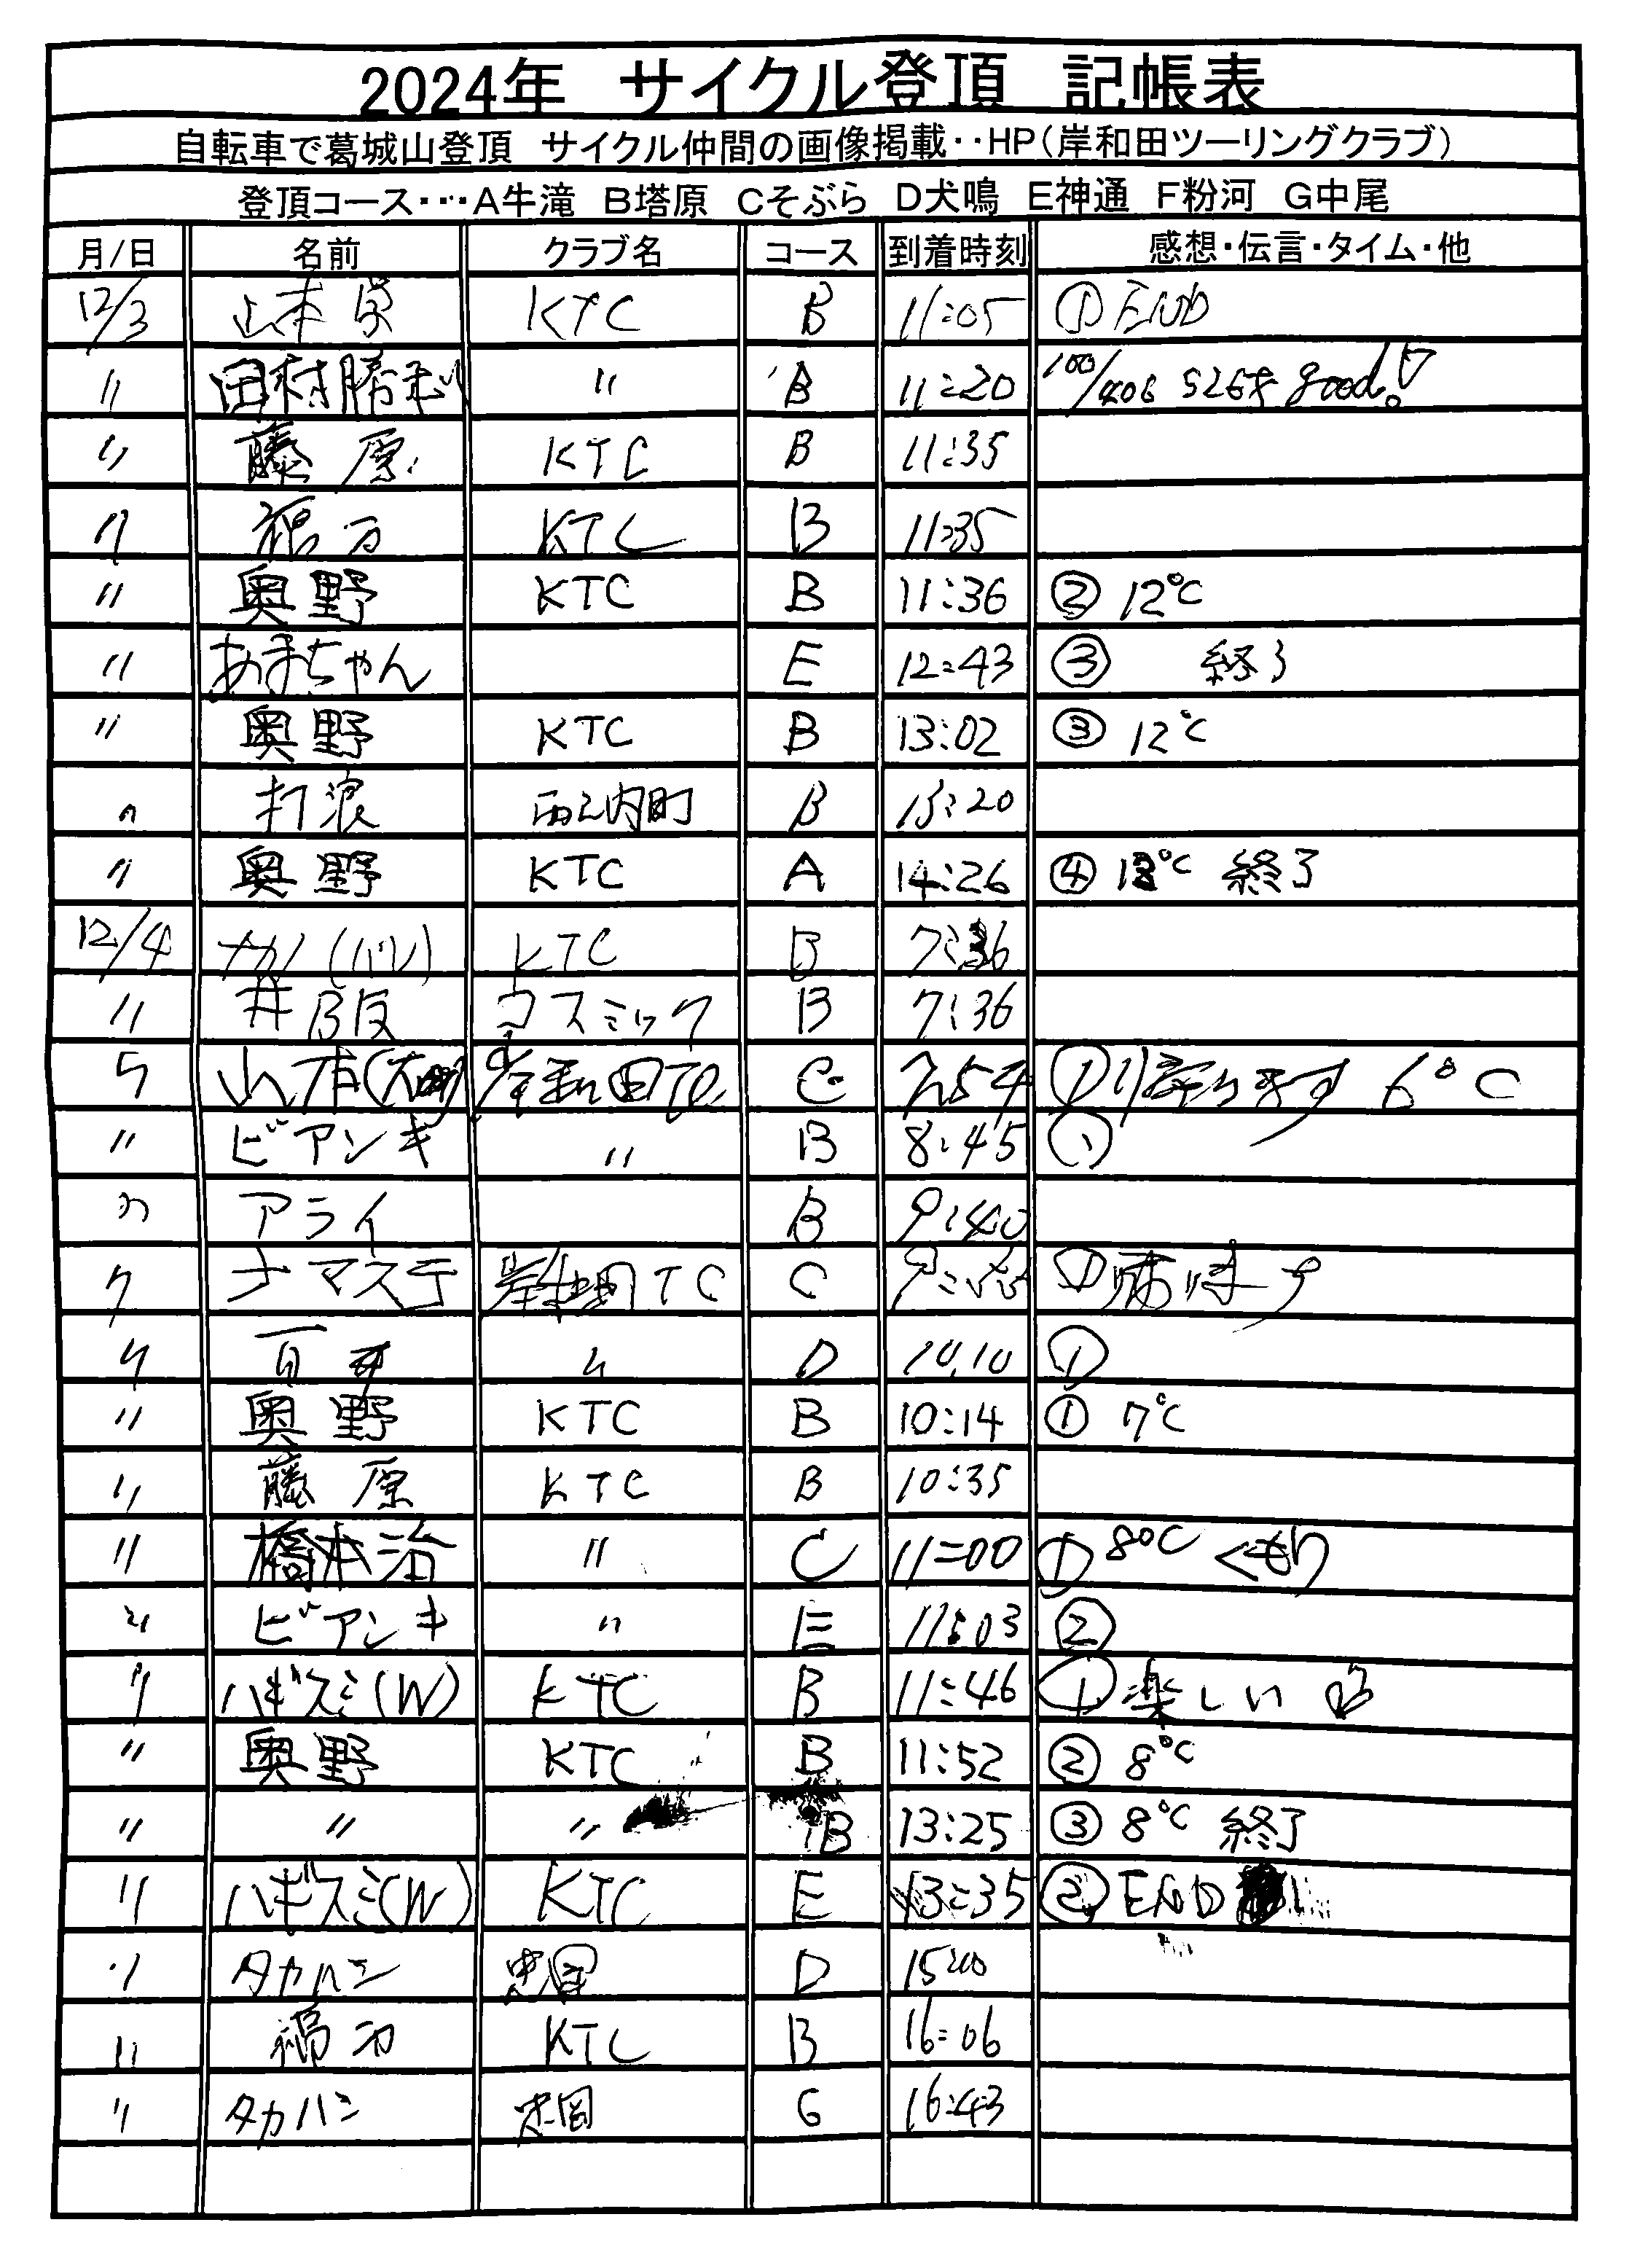 2024年 サイクル登頂 記帳表
自転車で葛城山登頂 サイクル仲間の画像掲載‥HP(岸和田ツーリングクラブ)
登頂コース‥‥A牛滝 B塔原 Cそぶら D犬鳴 E神通 F粉河 G中尾
月/日 名前 クラブ名 コース 到着時刻 感想・伝言・タイム・他
12/3 山本 KTC B 11:05 ① END
〃 田村勝 〃 A 11:20 100/406 good!
〃 藤原 KTC B 11:35
〃 福万 KTC B 11:35
〃 奥野 KTC B 11:36 ② 12℃
〃 あまちゃん E 12:43 ③ 終了
〃 奥野 KTC B 13:02 ③ 12℃
〃 打浪 西之内町 B 13:20
〃 奥野 KTC A 14:26 ④ ℃ 終了
12/4 ナカノ(バル) KTC B 7:36
〃 井阪 コスミック B 7:36
〃 山本 岸和田TC C 7:54 ① 6℃
〃 ビアンキ 〃 B 8:45 ①
〃 アライ B 9:40
〃 ナマステ 岸和田TC C ①
〃 百井 〃 D 10:10 ①
〃 奥野 KTC B 10:14 ① 7℃
〃 藤原 KTC B 10:35
〃 橋本治 〃 C 11:00 ① 8℃ くもり
〃 ビアンキ 〃 E 11:03 ②
〃 ハギスミ(W) KTC B 11:46 ① 楽しい
〃 奥野 KTC B 11:52 ② 8℃
〃 〃 〃 B 13:25 ③ 8℃ 終了
〃 ハギスミ(W) KTC E 13:35 ② END
〃 タカハシ 忠岡 D 15:00
〃 福万 KTC B 16:06
〃 タカハシ 忠岡 G 16:43